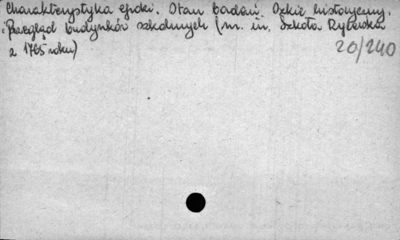 Charakterystyka epoki. Stan badań. Szkic historyczny.
Przegląd budynków szkolnych (m. in. Szkoła Rycerska
z 1765 roku)
20/240